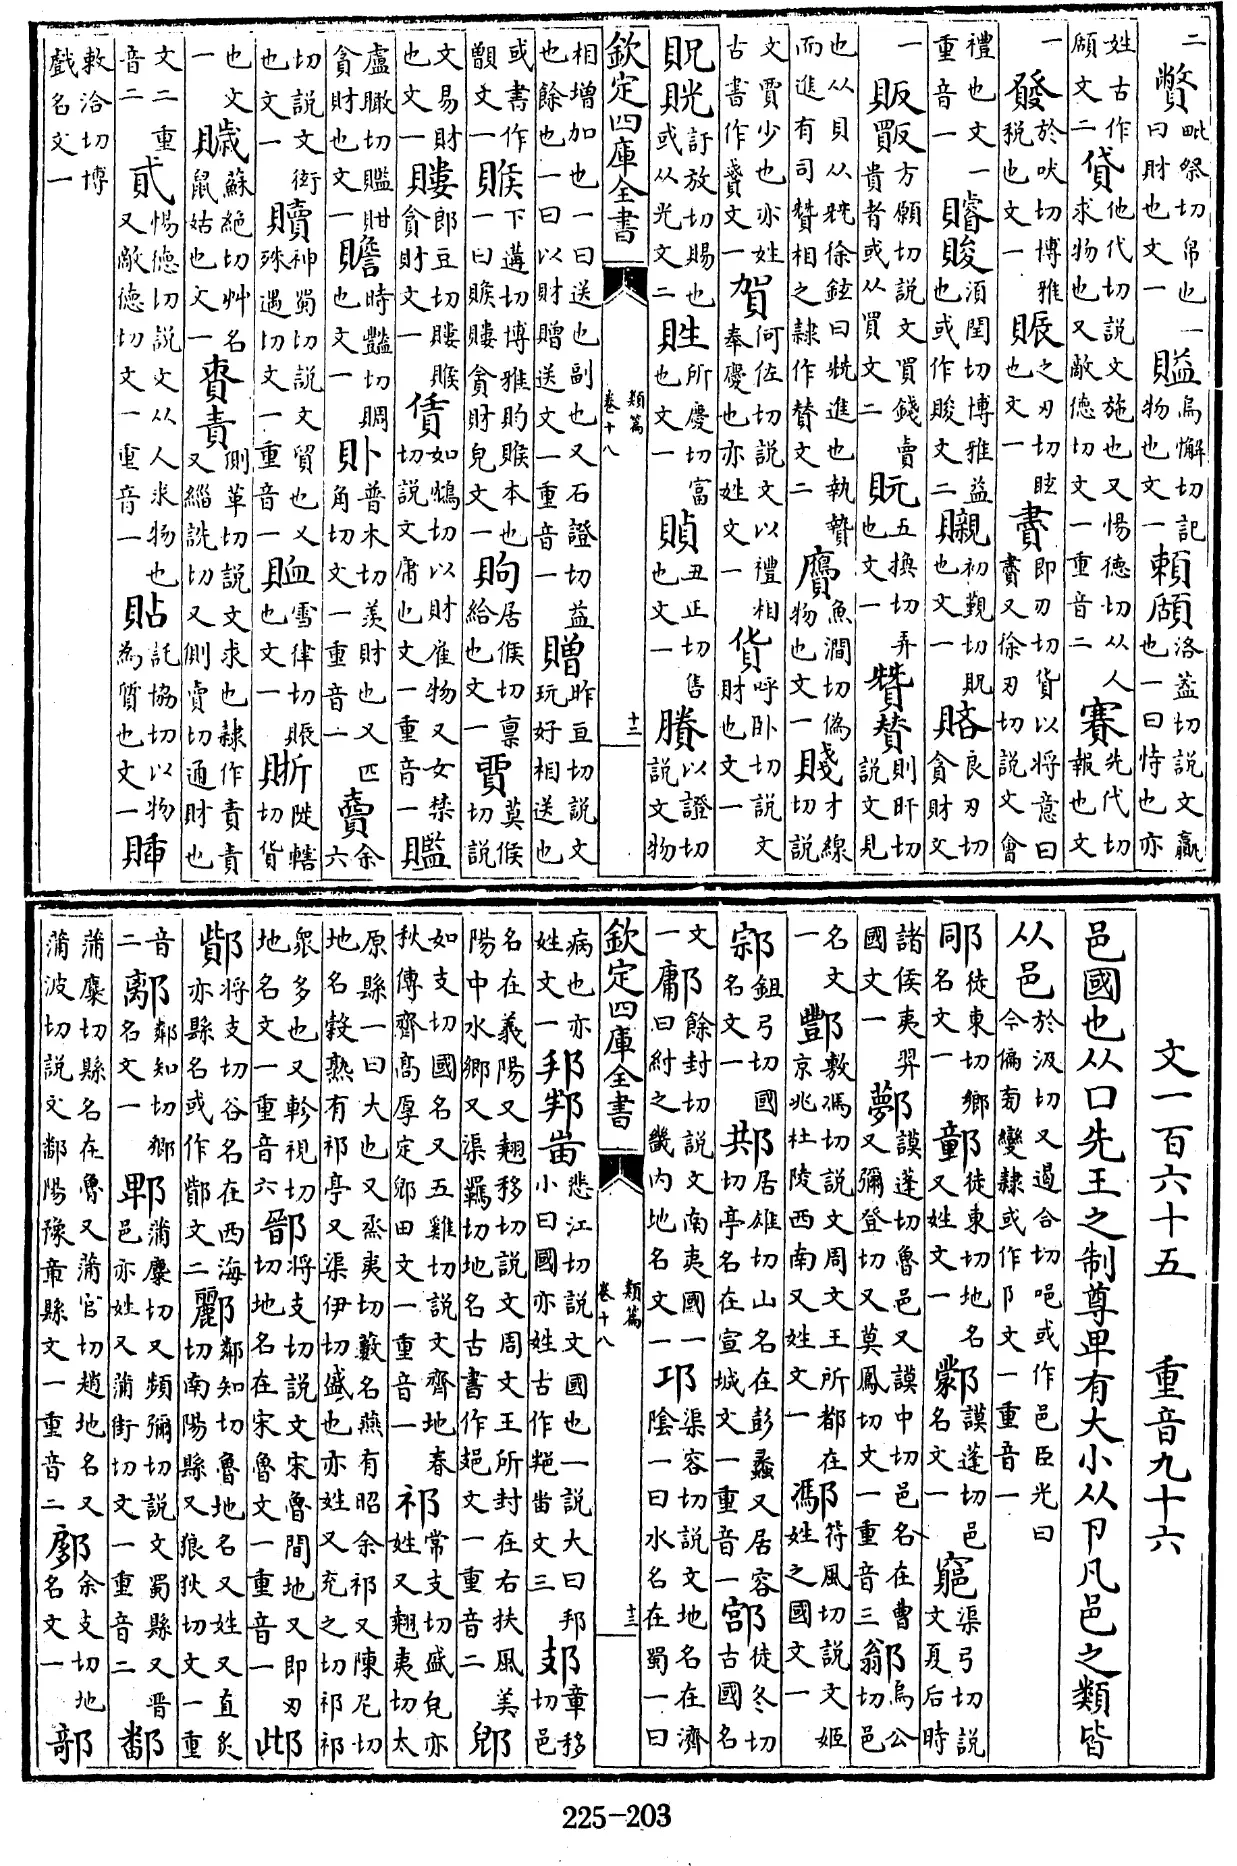 二𧸁毗祭切帛也一曰財也文一賹烏懈切記物也文一賴䫶洛蓋切說文贏也一曰恃也亦
姓古作䫶文二貸他代切說文施也又惕德切从人求物也又敵德切文一重音二賽先代切報也文
一於吠切博雅稅也文一賑之刃切眩也文一賮即刃切貨以將意曰賮又徐刃切說文會
禮也文一重音一賐須閏切博雅益也或作賐文二初覲切貺也文一賂良刃切貪財文
一販方願切說文買錢賣貴者或从買文二貦五換切弄也文一贊賛則旰切說文見
也从貝从兟徐鉉曰兟進也執贄而進有司贊相之隸作賛文二贗魚澗切偽物也文一賤才線切說
文賈少也亦姓古書作文一賀何佐切說文以禮相奉慶也亦姓文一貨呼卧切說文財也文一
貺訏放切賜也或从光文二貹所慶切富也文一丑正切售也文一賸以證切說文物
欽定四庫全書 類篇 卷十八 十三
相增加也一曰送也副也又石證切益也餘也一曰以財贈送文一重音一贈昨亘切說文玩好相送也
或書作文一䞀下遘切博雅䞀本也一曰䞀䝏貪財皃文一䝧居候切稟給也文一貿莫候切說
文易財也文一䝏郎豆切䝏䞀貪財文一賃如鴆切以財雇物又女禁切說文庸也文一重音一
盧瞰切貪財也文一贍時豔切賙也文一普木切羨財也又匹角切文一重音一賣余六
切說文衒也文一贖神蜀切說文貿也又殊遇切文一重音一雪律切賑也文一陟轄切貨
也文一蘇絕切艸名鼠姑也文一責側革切說文求也隸作責責又緇詵切又側賣切通財也
文二重音二貣惕德切說文从人求物也又敵德切文一重音一貼託協切以物為質也文一
敕洽切博戲名文一
文一百六十五 重音九十六
邑國也从口先王之制尊卑有大小从卪凡邑之類皆
从邑於汲切又遏合切唈或作邑臣光曰今偏旁變隸或作阝文一重音一
𨛌徒東切鄉名文一𨞱徒東切地名又姓文一鄸謨蓬切邑名文一竆渠弓切說文夏后時
諸侯夷羿國文一鄸謨蓬切魯邑又謨中切邑名在曹又彌登切又莫鳳切文一重音三䣙烏公切邑
名文一酆敷馮切說文周文王所都在京兆杜陵西南又姓文一符風切說文姬姓之國文一
鉏弓切國名文一居雄切山名在彭蠡又居容切亭名在宣城文一重音一徒冬切古國名
文一鄘餘封切說文南夷國一曰紂之畿內地名文一邛渠容切說文地名在濟陰一曰水名在蜀一曰
欽定四庫全書 類篇 卷十八 十三
病也亦姓文一邦悲江切說文國也一說大曰邦小曰國亦姓古作文三章移切邑
名在義陽又翹移切說文周文王所封在右扶風美陽中水鄉又渠羈切地名古書作文一重音二郳
如支切國名又五雞切說文齊地春秋傳齊高厚定郳田文一重音一祁常支切盛皃亦姓又翹夷切太
原縣一曰大也又烝夷切藪名燕有昭余祁又陳尼切地名穀熟有祁亭又渠伊切盛也亦姓又充之切祁祁
眾多也又軫視切地名文一重音六鄑將支切說文宋魯間地又即刃切地名在宋魯文一重音一
鄑將支切谷名在西海亦縣名或作文二酈鄰知切魯地名又姓又直炙切南陽縣又狼狄切文一重
音二鄰知切鄉名文一郫蒲麋切又頻彌切說文蜀縣又晋邑亦姓又蒲街切文一重音二鄱
蒲麋切縣名在魯又蒲官切趙地名又蒲波切說文鄱陽豫章縣文一重音二余支切地名文一
225-203